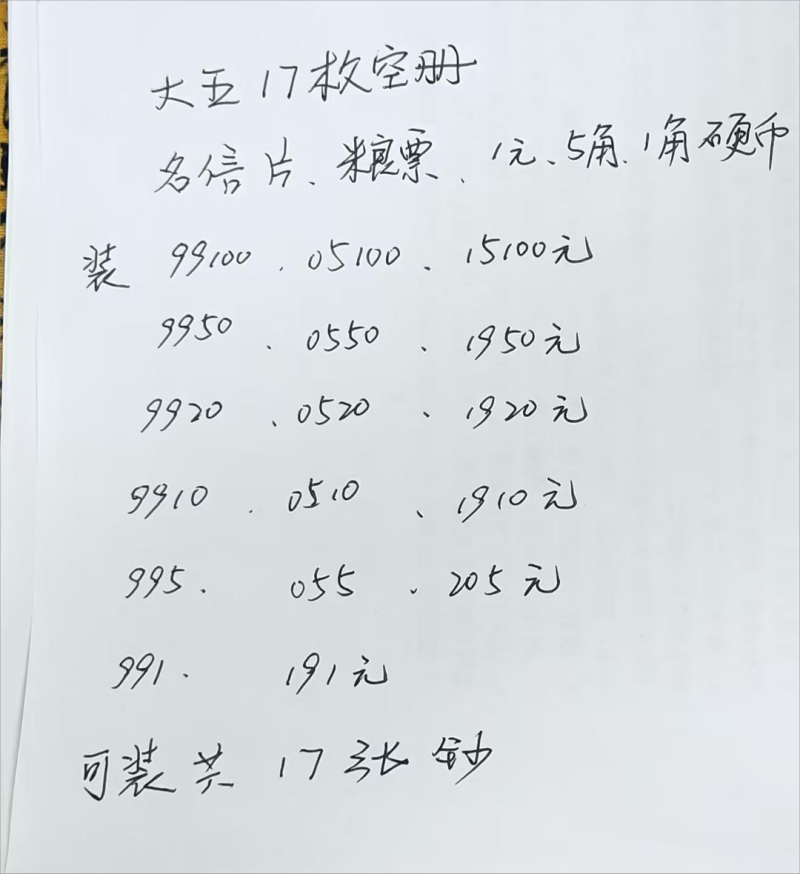 大五17枚空册
名信片、粮票、1元、5角、1角硬币
装 99100、05100、15100元
9950、0550、1950元
9920、0520、1920元
9910、0510、1910元
995、055、205元
991、191元
可装共17张钞